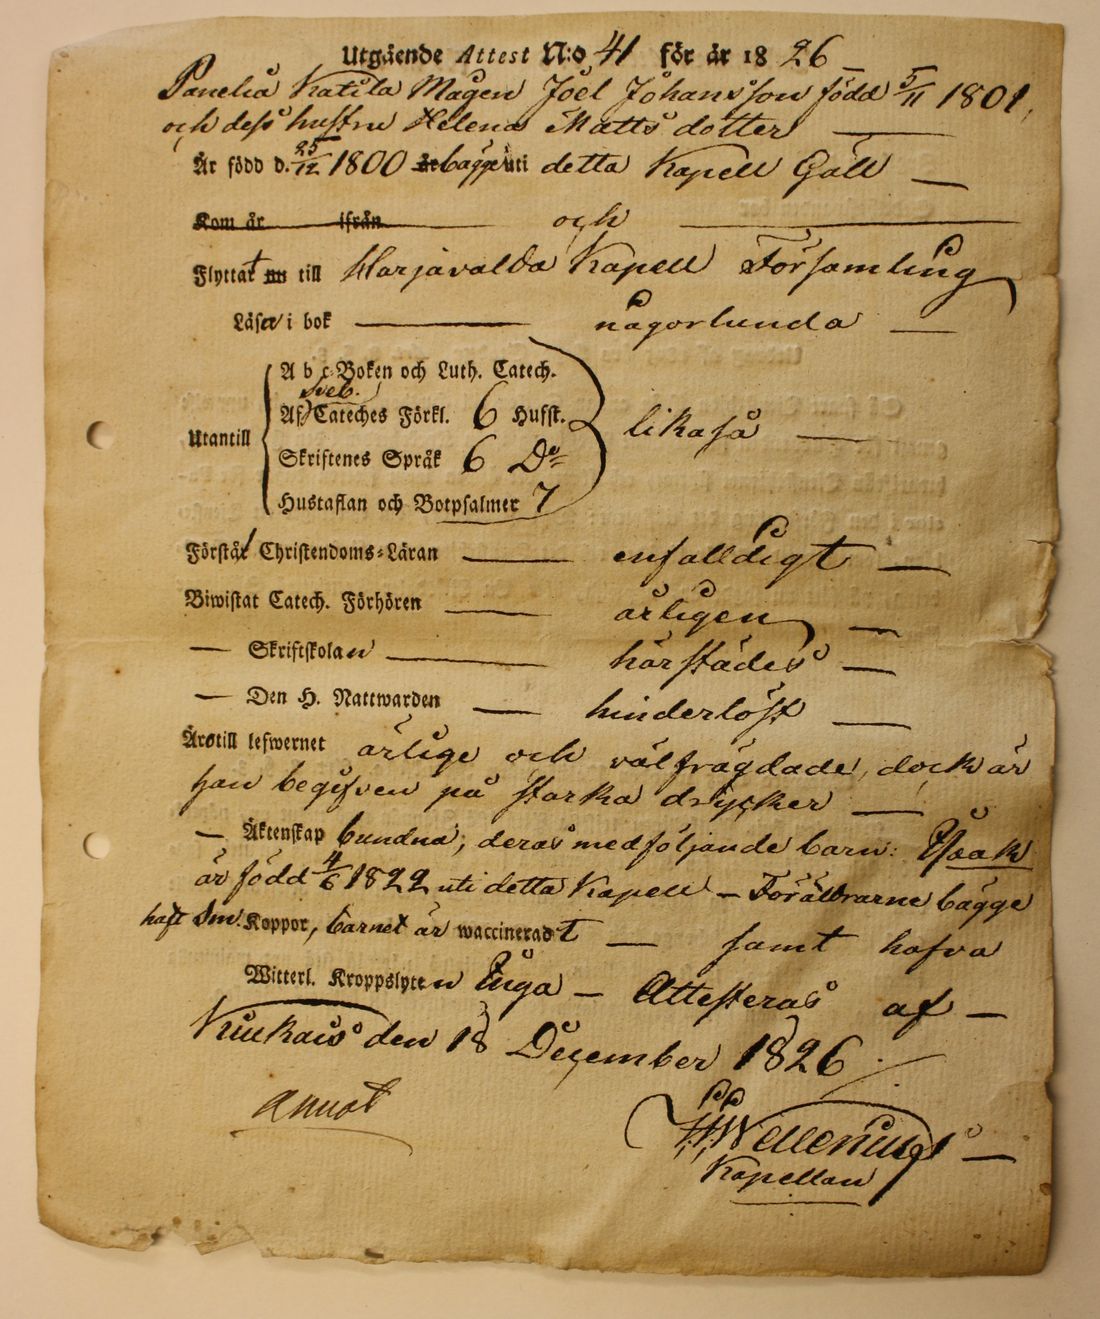 Utgående Attest N:o 41 för år 1826
Panelia Katila Mågen Joel Johansson född 5/11 1801,
och dess hustru Helena Matts dotter
Är född d. 25/12 1800 är bägge uti detta Kapell Gäll
Kom år ifrån och
Flyttat nu till Harjavalda Kapell Församling
Läser i bok någorlunda
A b c-Boken och Luth. Catech.
Sveb.
Utantill Af Cateches Förkl. 6 Hufst. likaså
Skriftenes Språk 6 Do
Hustaflan och Botpsalmer 7
Förstår Christendoms-Läran enfalldigt
Biwistat Catech. Förhören årligen
Skriftskolan härstädes
Den H. Nattwarden hinderlöst
Äro till lefwernet ärlige och välfrägdade, dock är
han begifven på starka drycker
Äktenskap bundna; deras medföljande barn: Isaak
är född 4/6 1822 uti detta Kapell - Föräldrarne bägge
haft Sm. Koppor, barnet är waccineradt samt hafva
Witterl. Kroppslyten Inga - Attesteras af
Kiukais den 18 December 1826
annot
Wellenius
Kapellan